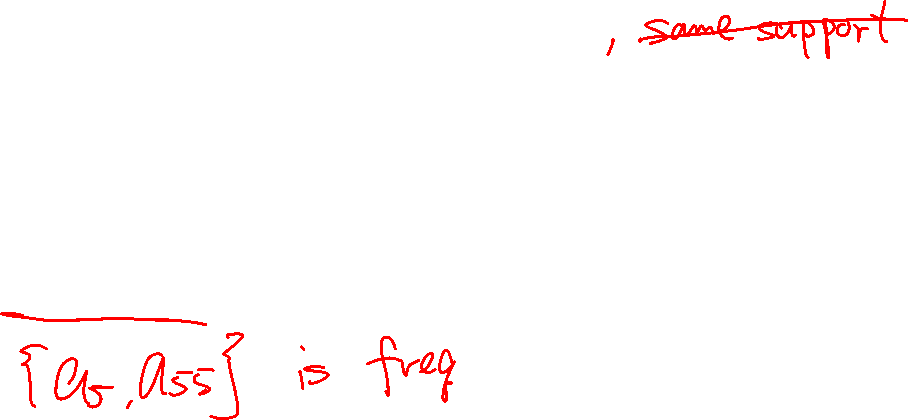 , same support
{a5, a55} is freq